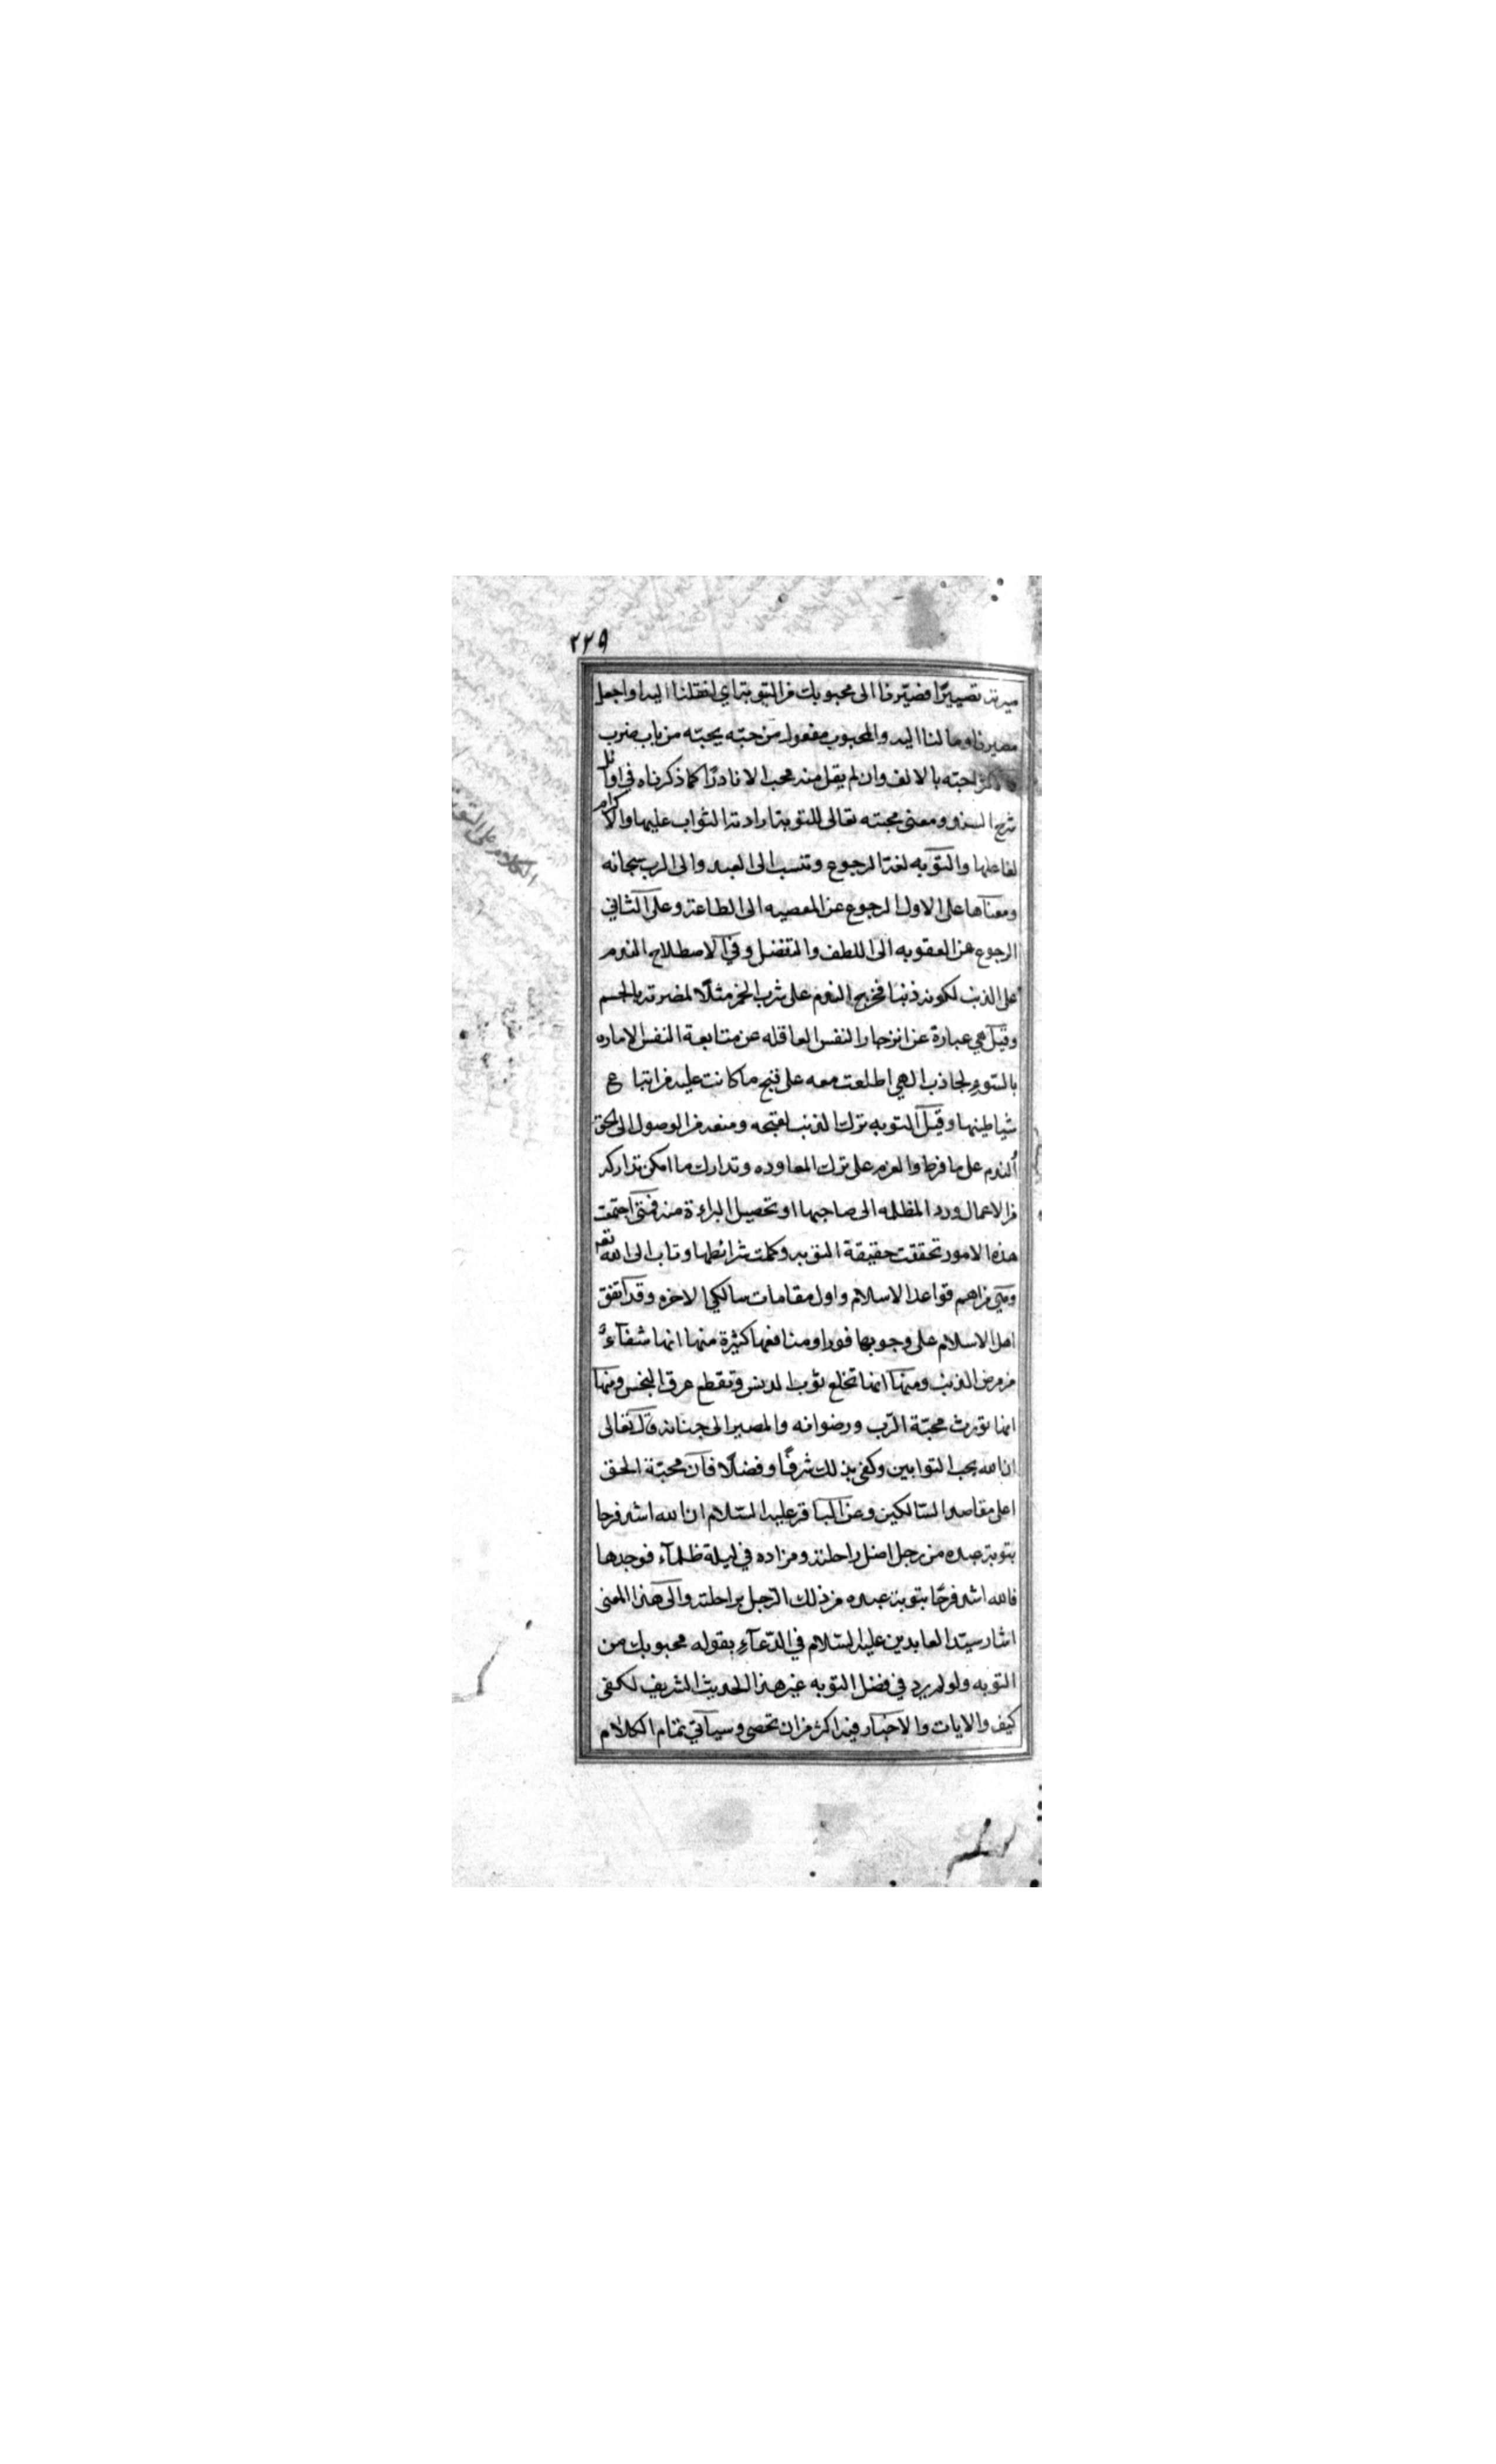 ٢٢٩
صيرته تصييرًا فصيّرنا الى محبوبك من التوبة اي انقلنا اليه او اجعل
مصيرنا وما لنا اليه والمحبوب مفعول من حبّه يحبّه من باب ضرب
والاكثر احبّه بالالف وان لم يقل منه محب الا نادرًا كما ذكرناه في اوائل
شرح السند ومعنى محبته تعالى للتوبة ارادته الثواب عليها والاكرام
لفاعلها والتوبه لغة الرجوع وتنسب الى العبد والى الرب سبحانه
ومعناها على الاول الرجوع عن المعصيه الى الطاعة وعلى الثاني
الرجوع عن العقوبه الى اللطف والتفضل وفي الاصطلاح الندم
على الذنب لكونه ذنبا فخرج الندم على شرب الخمر مثلًا لمضرته بالجسم
وقيل هي عبارة عن انزجار النفس العاقله عن متابعة النفس الاماره
بالسّوء لجاذب الهي اطلعت معه على قبح ما كانت عليه من اتباع
شياطينها وقيل التوبه ترك الذنب لقبحه ومنعه من الوصول الى الحق
والندم على ما فرط والعزم على ترك المعاوده وتدارك ما امكن تداركه
من الاعمال ورد المظلمه الى صاحبها او تحصيل البراءة منه فمتى اجتمعت
هذه الامور تحققت حقيقة التوبه وكملت شرائطها وتاب الى الله تعه
وهي من اهم قواعد الاسلام واول مقامات سالكي الاخره وقد اتفق
اهل الاسلام على وجوبها فورا ومنافعها كثيرة منها انها شفآءٌ
من مرض الذنب ومنها انها تخلع ثوب الدنس وتقطع عرق النجس ومنها
انها تورث محبّة الرّب ورضوانه والمصير الى جنانه قال تعالى
ان الله يحب التوابين وكفى بذلك شرفًا وفضلًا فان محبّة الحق
اعلى مقاصد السّالكين وعن الباقر عليه السّلام ان الله اشد فرحا
بتوبة عبده من رجل اضل راحلته ومزاده في ليلة ظلمآء فوجدها
فالله اشد فرحًا بتوبة عبده من ذلك الرّجل براحلته والى هذا المعنى
اشار سيّد العابدين عليه السّلام في الدّعآء بقوله محبوبك من
التوبه ولو لم يرد في فضل التوبه غير هذا الحديث الشريف لكفى
كيف والايات والاخبار فيه اكثر من ان تحصى وسيآتي تمام الكلام
الكلام على التوبة